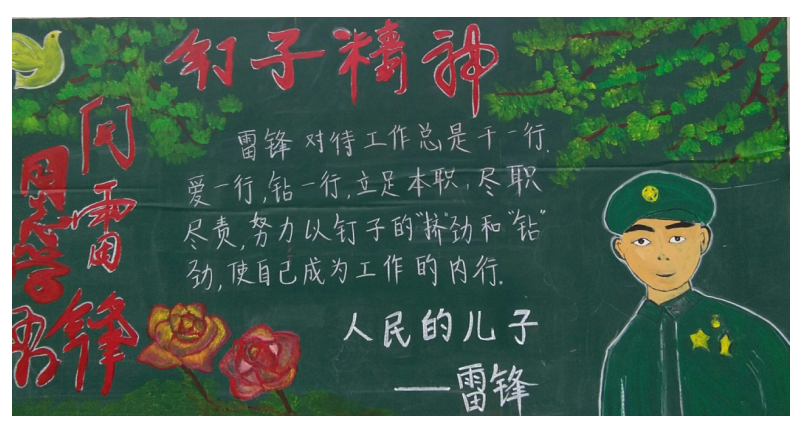 钉子精神
向雷锋
同志学习
雷锋对待工作总是干一行.
爱一行,钻一行,立足本职,尽职
尽责,努力以钉子的"挤"劲和"钻"
劲,使自己成为工作的内行.
人民的儿子
——雷锋